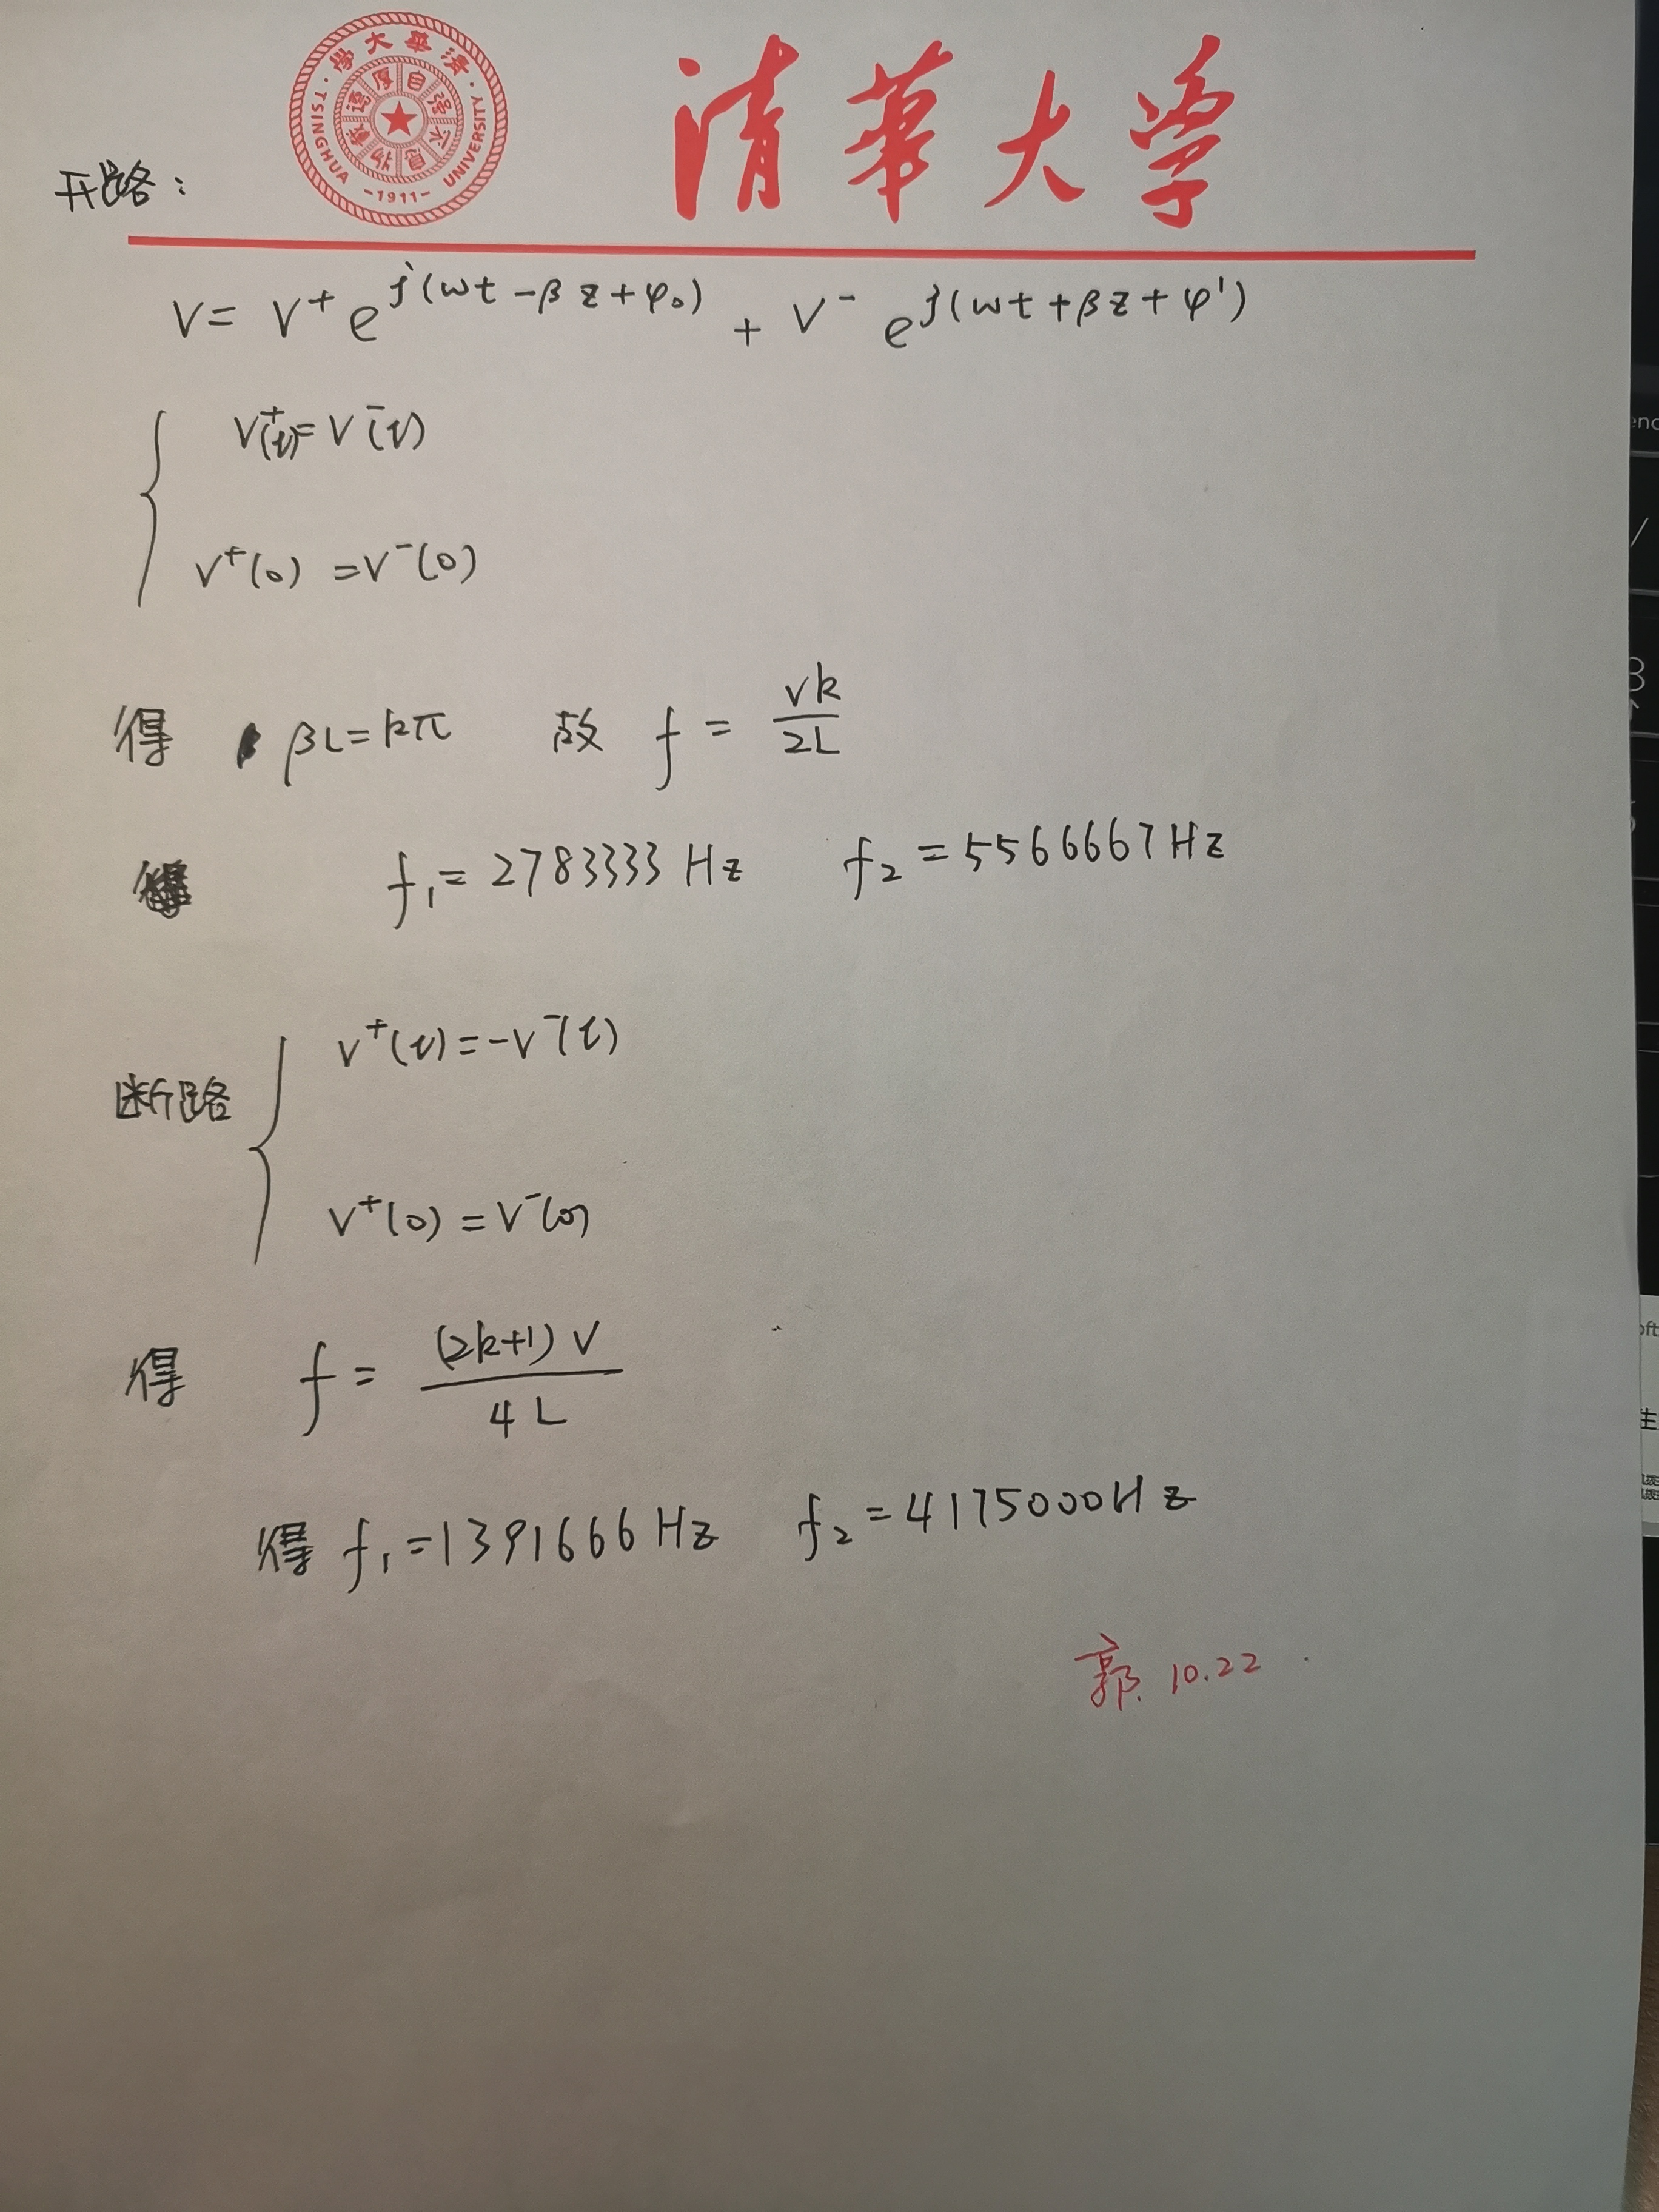 清華大学
清華大學
自强不息
厚德載物
TSINGHUA UNIVERSITY
-1911-
开路：
V = V⁺ e^{j(ωt - βz + φ₀)} + V⁻ e^{j(ωt + βz + φ')}
V⁺(l) = V⁻(l)
V⁺(0) = V⁻(0)
得 βL = kπ 故 f = vk/2L
f₁ = 2783333 Hz f₂ = 5566667 Hz
断路
V⁺(l) = -V⁻(l)
V⁺(0) = V⁻(0)
得 f = (2k+1)V/4L
得 f₁ = 1391666 Hz f₂ = 4175000 Hz
郭. 10.22